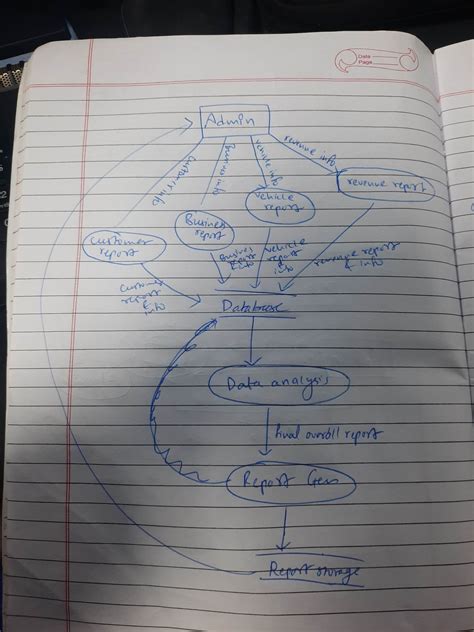 Date
Page
Admin
customer info
business info
vehicle info
revenue info
customer
report
Busines
report
vehicle
report
revenue report
customer
report
&
info
Busines
report
& info
vehicle
report
&
info
revenue report
& info
Database
Data analysis
overall report
Report Gen
Report storage